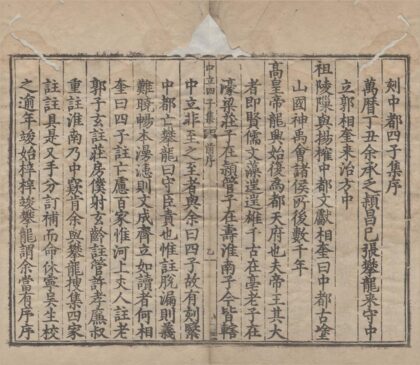 刻中都四子集序
萬曆丁丑余承乏頴昌已張攀龍来守中
立郭相奎来治方中
祖陵課與揚榷中都文獻相奎曰中都古塗
山國神禹會諸侯所後數千年
高皇帝龍興始後為都天府也夫帝王其大
者即賢儒文藻遑遑雄千古在亳老子在
濠梁莊子在頴管子在壽淮南子今皆轄
中立四子集 前序 乙
中立非至之至者與余曰四子故有刻繄
中都亡攀龍曰守臣責也惟註脫漏則義
難暢本漶則文成齊立如讀者何相
奎曰四子註亡慮百家惟河上丈人註老
郭子玄註莊房僕射玄齡註管許孝廉叔
重註淮南乃中窾肯余與攀龍搜集四家
註註具是又手分訂補而命休寧吳生校
之逾年竣始梓梓竣攀龍謂余當有序序